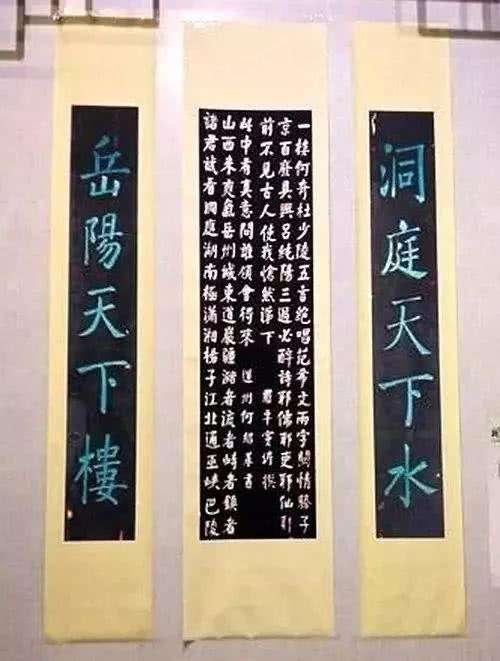 洞庭天下水
一樓何奇杜少陵五言絕唱范希文兩字關情滕子
京百廢具興呂純陽三過必醉詩耶儒耶吏耶仙耶
前不見古人使我愴然涕下
羅平竇垿撰
諸君試看洞庭湖南極瀟湘揚子江北通巫峽巴陵
山西來爽氣岳州城東道巖疆潴者流者峙者鎮者
此中有真意問誰領會得來
道州何紹基書
岳陽天下樓